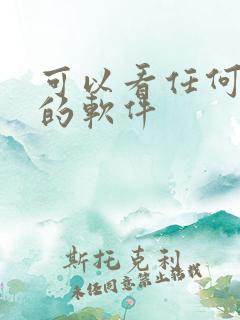 可以看任何
的軟件
斯托克利
未任同意禁止搭載